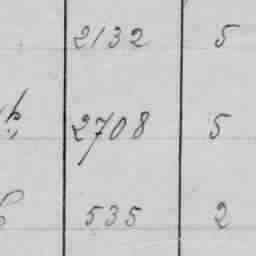 2132 5
2708 5
535 2